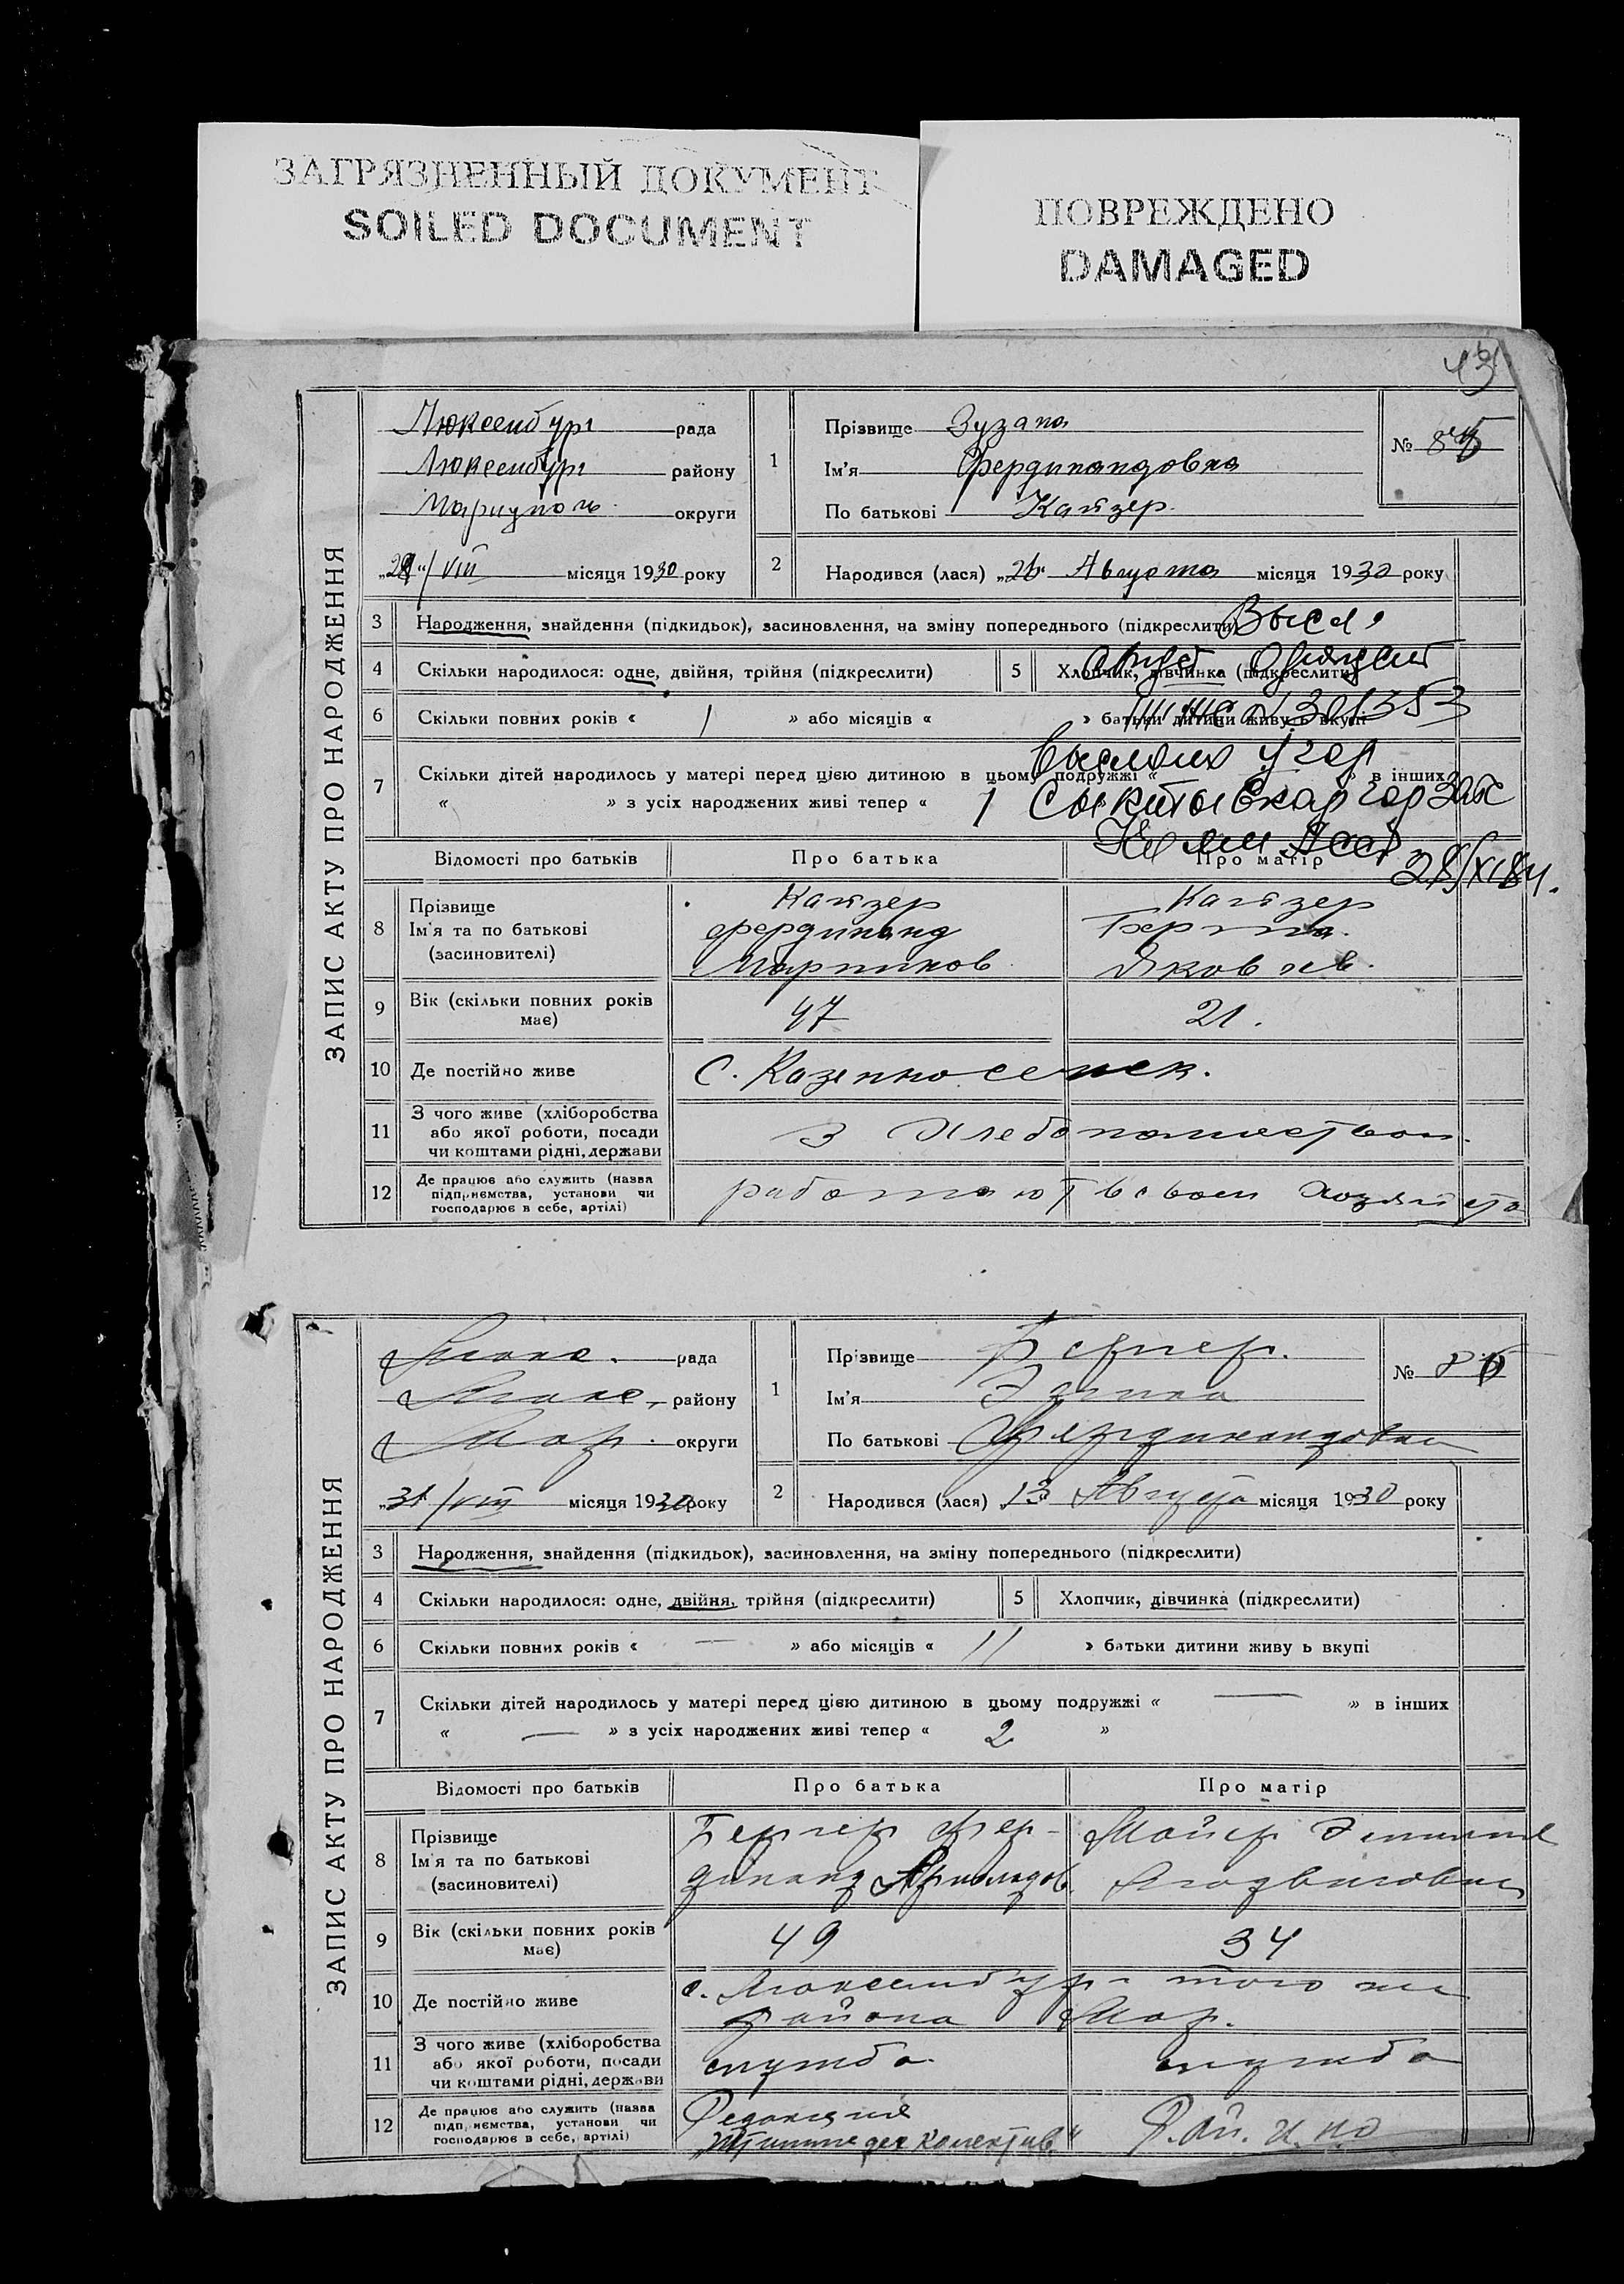 ЗАГРЯЗНЕННЫЙ ДОКУМЕНТ
SOILED DOCUMENT
ПОВРЕЖДЕНО
DAMAGED
ЗАПИС АКТУ ПРО НАРОДЖЕННЯ
Люксембург рада
Люксембург району
Мариуполь округи
/VIII місяця 1930 року
1
Прізвище Зузана
Ім'я Фердинандовна
По батькові Кайзер
№
2
Народився (лася) „26“ Августа місяця 1930 року
3 Народження, знайдення (підкидьок), засиновлення, на зміну попереднього (підкреслити)
4 Скільки народилося: одне, двійня, трійня (підкреслити)
5 Хлопчик, дівчинка (підкреслити)
6 Скільки повних років « 1 » або місяців « » батьки дитини живуть вкупі
7 Скільки дітей народилось у матері перед цією дитиною в цьому подружжі « » в інших
« » з усіх народжених живі тепер « 1
Сыктывкар
Відомості про батьків Про батька Про матір
8 Прізвище
Ім'я та по батькові
(засиновителі)
Кайзер
Фердинанд
Мартинов
Кайзер
Берта
Яковлев.
9 Вік (скільки повних років
має)
47
21.
10 Де постійно живе
С. Казенносельск.
11 З чого живе (хліборобства
або якої роботи, посади
чи коштами рідні, держави
З Хлебопашеством
12 Де працює або служить (назва
підприємства, установи чи
господарює в себе, артілі)
работают в своем
ЗАПИС АКТУ ПРО НАРОДЖЕННЯ
Люкс. рада
Люкс. району
Мар. округи
„31/VIII місяця 1930 року
1
Прізвище Бергер.
Ім'я
По батькові Фердинандовна
№
2
Народився (лася) 13 Августа місяця 1930 року
3 Народження, знайдення (підкидьок), засиновлення, на зміну попереднього (підкреслити)
4 Скільки народилося: одне, двійня, трійня (підкреслити)
5 Хлопчик, дівчинка (підкреслити)
6 Скільки повних років « — » або місяців « 11 » батьки дитини живуть вкупі
7 Скільки дітей народилось у матері перед цією дитиною в цьому подружжі « — » в інших
« — » з усіх народжених живі тепер « 2 »
Відомості про батьків Про батька Про матір
8 Прізвище
Ім'я та по батькові
(засиновителі)
Бергер Фер-
динанд Арнольдов.
Майер Эмилия
Людвиговна
9 Вік (скільки повних років
має)
49
34
10 Де постійно живе
с. Люксембург того же
района Мар.
11 З чого живе (хліборобства
або якої роботи, посади
чи коштами рідні, держави
служба
служба
12 Де працює або служить (назва
підприємства, установи чи
господарює в себе, артілі)
Редакция